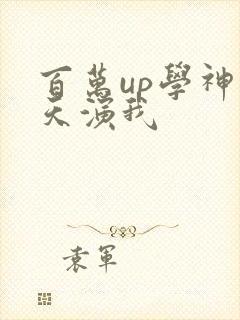 百萬up學神
天演我
袁軍